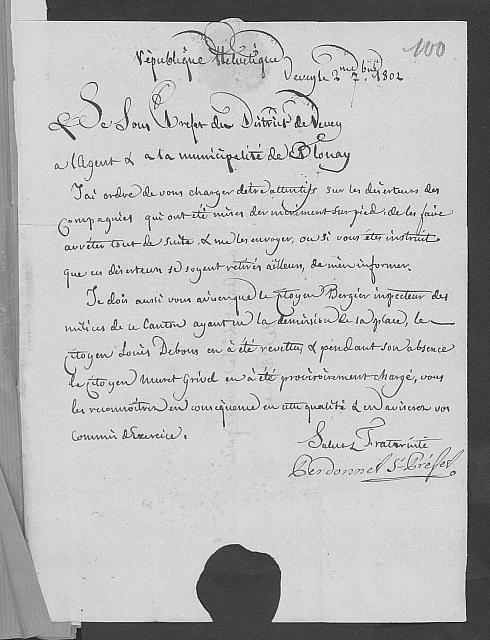 100
République Helvétique
Vevey le 2me 7bre 1802
Le Sous Prefet du District de Vevey
a l'Agent & a la municipalité de Blonay
J'ai ordre de vous charger detre attentifs sur les déserteurs des
Compagnies qui ont été mises dernièrement sur pied de les faire
arrêter tout de suite, & me les envoyer, ou si vous êtes instruit
que ces déserteurs se soyent retirés ailleurs, de m'en informer.
Je dois aussi vous aviser que le Citoyen Bergier inspecteur des
milices de ce Canton ayant eu la demission de sa place, le
Citoyen Louis Debons en a été revettu & pendant son absence
le Citoyen muret Grivel en a été provisoirement chargé, vous
les reconnoitrez en consequence en cette qualité & en aviserez vos
Commis d'Exercice.
Salut & Fraternité
Perdonnet Ss Préfet